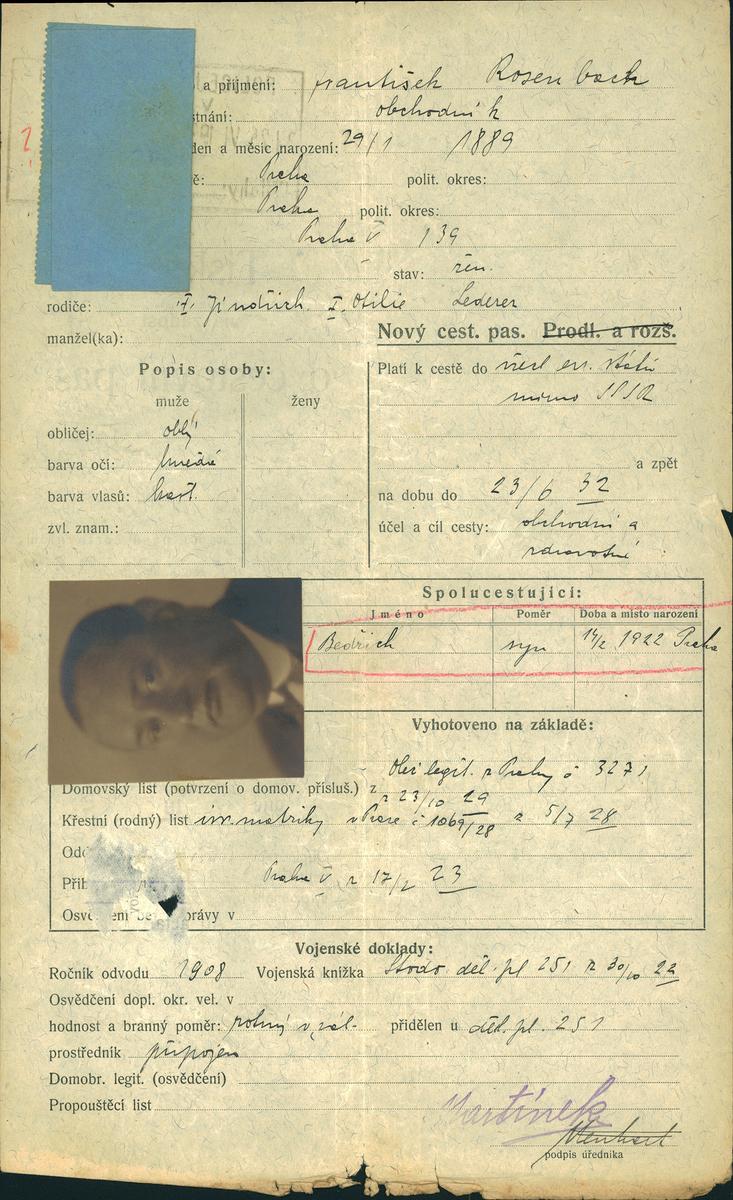 a příjmení: František Rosenbach
stnání: obchodník
den a měsíc narození: 29/1 1889
ě: Praha polit. okres:
Praha polit. okres:
Praha V 139
stav: žen.
rodiče: Jindřich Otilie Lederer
manžel(ka):
Nový cest. pas. Prodl. a rozš.
Popis osoby:
muže ženy
obličej: oblý
barva očí: hnědé
barva vlasů:
zvl. znam.:
Platí k cestě do
mimo SSSR
a zpět
na dobu do 23/6 32
účel a cíl cesty: obchodní a
zdravotní
Spolucestující:
Jméno Poměr Doba a místo narození
Bedřich syn 14/2 1922 Praha
Vyhotoveno na základě:
legit. z Prahy č 3271
Domovský list (potvrzení o domov. přísluš.) z
z 23/10 29
Křestní (rodný) list izr. matriky v Praze č 1069/28 z 5/7 28
Od
Přih Praha V z 17/2 23
Osvě ení be právy v
Vojenské doklady:
Ročník odvodu 1908 Vojenská knížka děl. pl 251 z 30/10 22
Osvědčení dopl. okr. vel. v
hodnost a branný poměr: přidělen u děl. pl. 251
prostředník
Domobr. legit. (osvědčení)
Propouštěcí list
Martínek
podpis úředníka